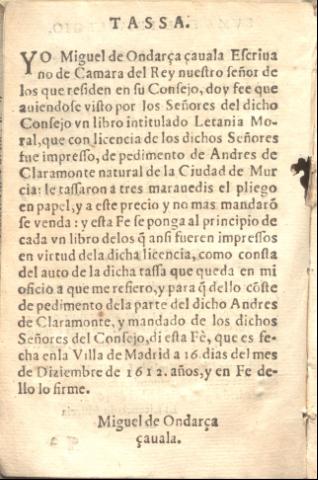 TASSA.
YO Miguel de Ondarça çauala Escriua
no de Camara del Rey nuestro señor de
los que residen en su Consejo, doy fee que
auiendose visto por los Señores del dicho
Consejo vn libro intitulado Letania Mo-
ral, que con licencia de los dichos Señores
fue impresso, de pedimento de Andres de
Claramonte natural de la Ciudad de Mur
cia: le tassaron a tres marauedis el pliego
en papel, y a este precio y no mas mandarõ
se venda: y esta Fe se ponga al principio de
cada vn libro delos q̃ ansi fueren impressos
en virtud dela dicha licencia, como consta
del auto de la dicha tassa que queda en mi
oficio a que me refiero, y para q̃ dello cõste
de pedimento dela parte del dicho Andres
de Claramonte, y mandado de los dichos
Señores del Consejo, di esta Fè, que es fe-
cha enla Villa de Madrid a 16. dias del mes
de Diziembre de 1612. años, y en Fe de-
llo lo firme.
Miguel de Ondarça
çauala.